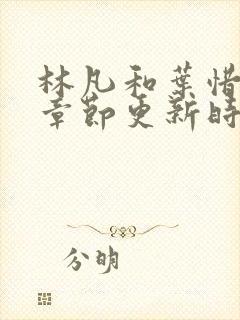 林凡和葉惜
章節更新時
分明